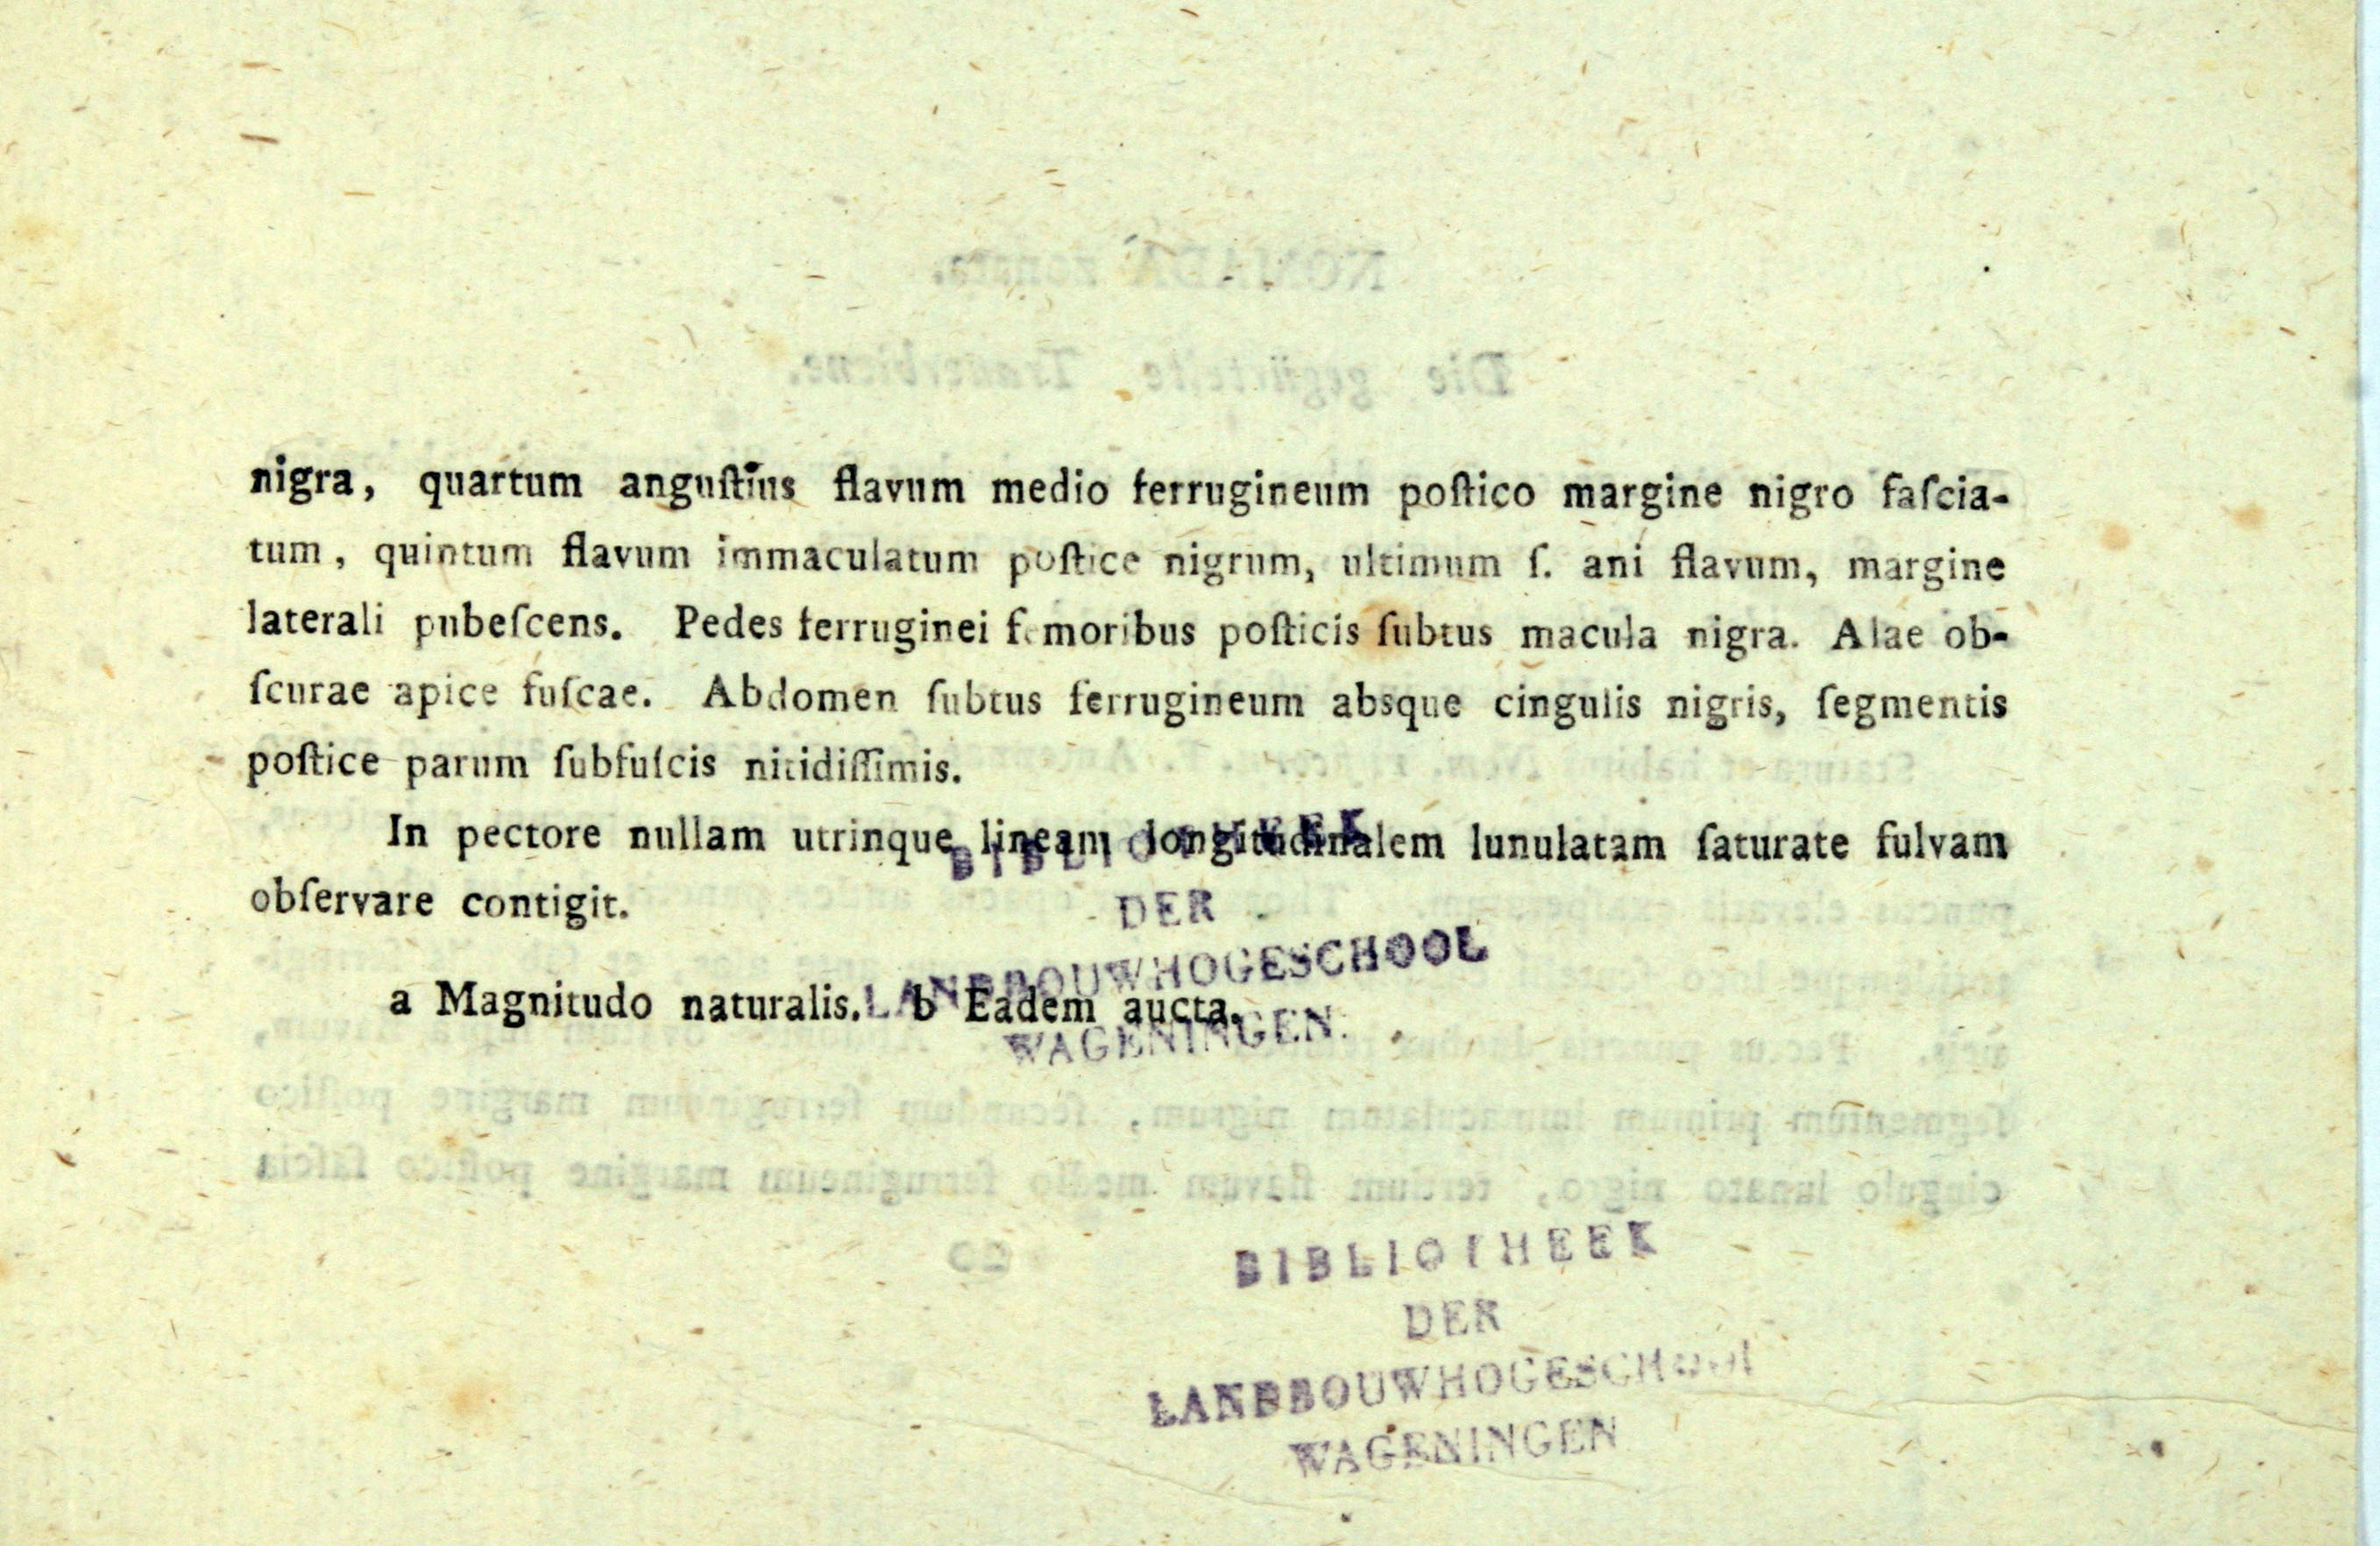 nigra, quartum anguſtius flavum medio ferrugineum poſtico margine nigro faſcia-
tum, quintum flavum immaculatum poſtice nigrum, ultimum ſ. ani flavum, margine
laterali pubeſcens. Pedes ferruginei femoribus poſticis ſubtus macula nigra. Alae ob-
ſcurae apice fuſcae. Abdomen ſubtus ferrugineum absque cingulis nigris, ſegmentis
poſtice parum ſubfuſcis nitidiſſimis.
In pectore nullam utrinque lineam longitudinalem lunulatam ſaturate fulvam
obſervare contigit.
a Magnitudo naturalis. b Eadem aucta.
BIBLIOTHEEK
DER
LANDBOUWHOGESCHOOL
WAGENINGEN.
BIBLIOTHEEK
DER
LANDBOUWHOGESCHOOL
WAGENINGEN